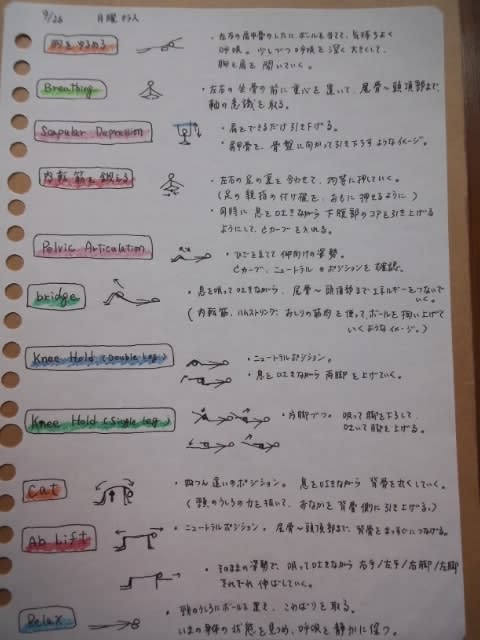 9/26 月曜クラス
胸をゆるめる
・左右の肩甲骨のしたにボールを当てて、気持ちよく
呼吸。少しづつ呼吸を深く大きくして、
胸と肩を開いていく。
Breathing
・左右の坐骨の前に重心を置いて、尾骨〜頭頂部まで、
軸の意識を取る。
Scapular Depression
・肩をできるだけ引き下げる。
・肩甲骨を、骨盤に向かって引き下ろすようなイメージ。
内転筋を鍛える
・左右の足の裏を合わせて、均等に押していく。
(足の親指の付け根を、おもに押せるように)
・同時に息を吐きながら下腹部のコアを引き上げる
ようにしてCカーブを入れる。
Pelvic Articulation
・ひざを立てて仰向けの姿勢。
Cカーブ、ニュートラルのポジションを確認。
bridge
・息を吸って吐きながら、尾骨〜頭頂部までエネルギーをつないで
いく。
(内転筋、ハムストリング、おしりの筋肉を使って、ボールを掬い上げて
いくようなイメージ。)
Knee Hold (Double Leg)
・ニュートラルポジション。
・息を吐きながら両脚を上げていく。
Knee Hold (Single Leg)
・片脚づつ。吸って脚を下ろして、
吐いて脚を上げる。
Cat
・四つん這いのポジション。息を吐きながら背骨を丸くしていく。
(頭のうしろの力を抜いて、おなかを背骨側に引き上げる。)
Ab Lift
・ニュートラルポジション。尾骨〜頭頂部まで、背骨をまっすぐにつなげる。
・そのままの姿勢で、吸って吐きながら右手/左手/右脚/左脚
それぞれ伸ばしていく。
Relax
・頭のうしろにボールを置き、こわばりを取る。
いまの身体の状態を見つめ、呼吸を静かに保つ。